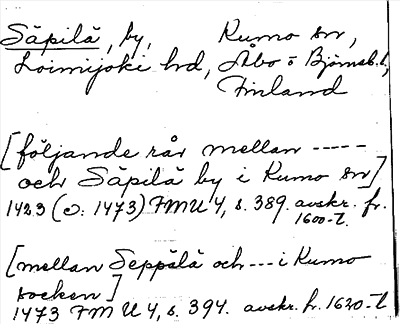 Säpilä, by, Kumo sn,
Loimijoki hd, Åbo o Björneb. l,
Finland
[följande rår mellan -----
och Säpilä by i Kumo sn]
1423 (o: 1473) FMU 4, s. 389. avskr. fr.
1600-t.
[mellan Seppälä och --- i Kumo
socken]
1473 FMU 4, s. 394. avskr. fr. 1620-t